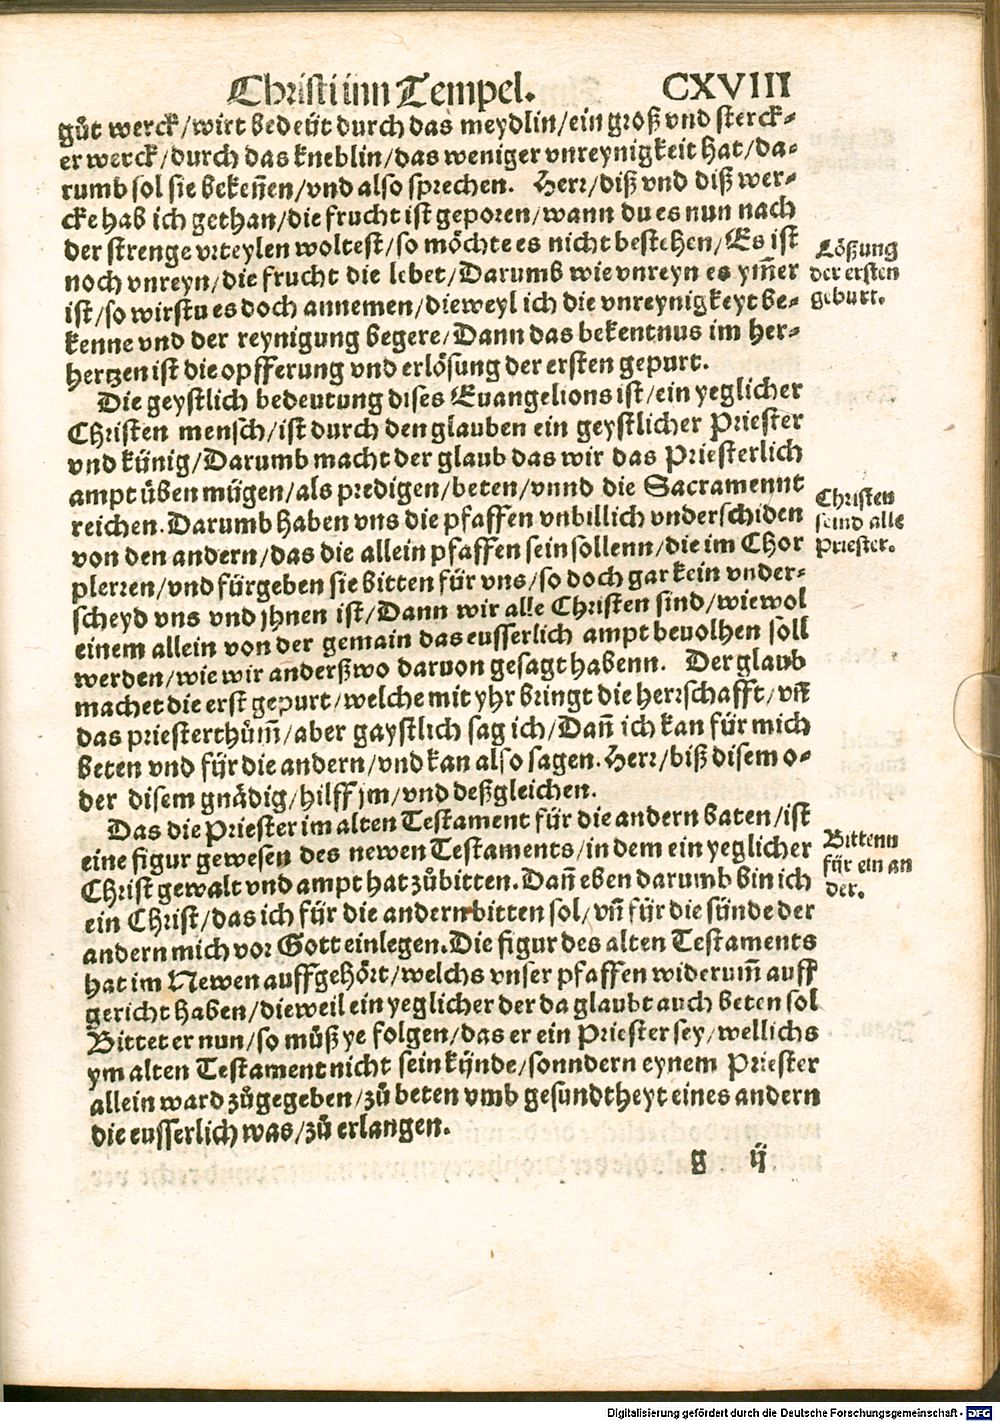 Christi inn Tempel. CXVIII
gůt werck/wirt bedeüt durch das meydlin/ein groß vnd sterck-
er werck/durch das kneblin/das weniger vnreynigkeit hat/da-
rumb sol sie bekeñen/vnd also sprechen. Herr/diß vnd diß wer-
cke hab ich gethan/die frucht ist geporen/wann du es nun nach
der strenge vrteylen woltest/so möchte es nicht bestehen/Es ist
noch vnreyn/die frucht die lebet/Darumb wie vnreyn es ym̃er
ist/so wirstu es doch annemen/dieweyl ich die vnreynigkeyt be-
kenne vnd der reynigung begere/Dann das bekentnus im her-
hertzen ist die opfferung vnd erlösung der ersten gepurt.
Lößung
der ersten
geburt.
Die geystlich bedeutung dises Euangelions ist/ein yeglicher
Christen mensch/ist durch den glauben ein geystlicher Priester
vnd künig/Darumb macht der glaub das wir das Priesterlich
ampt üben mügen/als predigen/beten/vnnd die Sacramennt
reichen. Darumb haben vns die pfaffen vnbillich vnderschiden
von den andern/das die allein pfaffen sein sollenn/die im Chor
plerren/vnd fürgeben sie bitten für vns/so doch gar kein vnder-
scheyd vns vnd jhnen ist/Dann wir alle Christen sind/wiewol
einem allein von der gemain das eusserlich ampt beuolhen soll
werden/wie wir anderßwo daruon gesagt habenn. Der glaub
machet die erst gepurt/welche mit yhr bringt die herrschafft/vñ
das priesterthům̃/aber gaystlich sag ich/Dañ ich kan für mich
beten vnd für die andern/vnd kan also sagen. Herr/biß disem o-
der disem gnädig/hilff jm/vnd deßgleichen.
Christen
seind alle
Priester.
Das die Priester im alten Testament für die andern baten/ist
eine figur gewesen des newen Testaments/in dem ein yeglicher
Christ gewalt vnd ampt hat zůbitten. Dañ eben darumb bin ich
ein Christ/das ich für die andern bitten sol/vñ für die sünde der
andern mich vor Gott einlegen. Die figur des alten Testaments
hat im Newen auffgehört/welchs vnser pfaffen widerum̃ auff
gericht haben/dieweil ein yeglicher der da glaubt auch beten sol
Bittet er nun/so můß ye folgen/das er ein Priester sey/wellichs
ym alten Testament nicht sein künde/sonndern eynem Priester
allein ward zůgegeben/zů beten vmb gesundtheyt eines andern
die eusserlich was/zů erlangen.
Bittenn
für ein an
der.
g ij
Digitalisierung gefördert durch die Deutsche Forschungsgemeinschaft - DFG